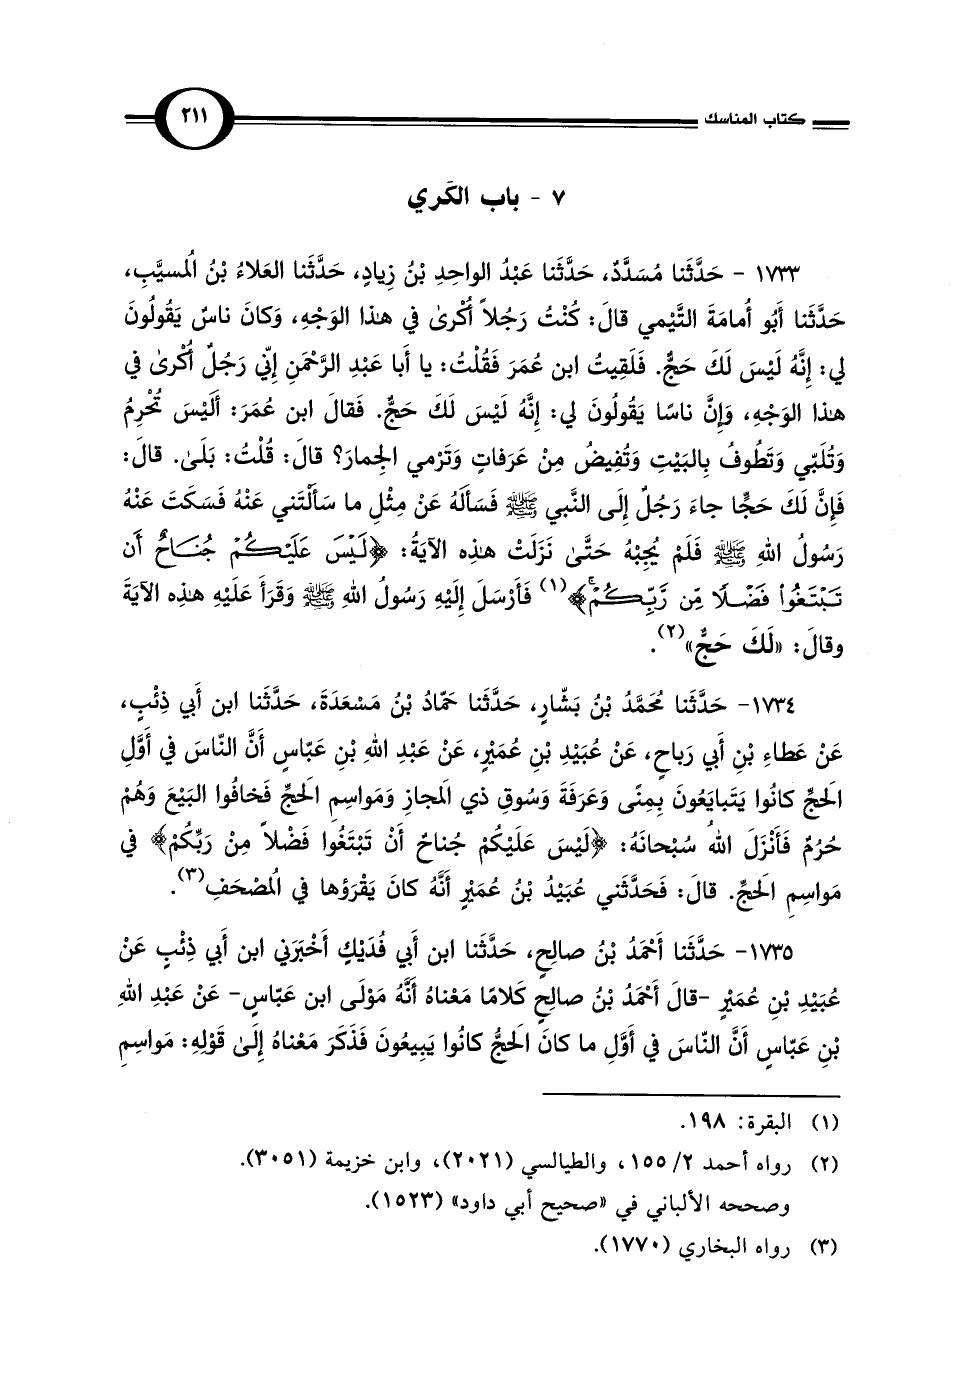 كتاب المناسك ٢١١
٧ - باب الكَري
١٧٣٣ - حَدَّثَنا مُسَدَّدٌ، حَدَّثَنا عَبْدُ الواحِدِ بْنُ زِيادٍ، حَدَّثَنا العَلاءُ بْنُ المُسيَّبِ،
حَدَّثَنا أَبُو أُمامَةَ التَّيْمي قالَ: كُنْتُ رَجُلاً أُكْرىٰ في هذا الوَجْهِ، وَكانَ ناسٌ يَقُولُونَ
لي: إِنَّهُ لَيْسَ لَكَ حَجٌّ. فَلَقِيتُ ابن عُمَرَ فَقُلْتُ: يا أَبا عَبْدِ الرَّحْمَنِ إِنّي رَجُلٌ أُكْرىٰ في
هذا الوَجْهِ، وَإِنَّ ناسًا يَقُولُونَ لي: إِنَّهُ لَيْسَ لَكَ حَجٌّ. فَقالَ ابن عُمَرَ: أَلَيْسَ تُحْرِمُ
وَتُلَبّي وَتَطُوفُ بِالبَيْتِ وَتُفِيضُ مِنْ عَرَفاتٍ وَتَرْمي الجِمارَ؟ قالَ: قُلْتُ: بَلَىٰ. قالَ:
فَإِنَّ لَكَ حَجًّا جاءَ رَجُلٌ إِلَى النَّبي ﷺ فَسَأَلَهُ عَنْ مِثْلِ ما سَأَلْتَني عَنْهُ فَسَكَتَ عَنْهُ
رَسُولُ اللهِ ﷺ فَلَمْ يُجِبْهُ حَتَّىٰ نَزَلَتْ هذِهِ الآيَةُ: ﴿لَيْسَ عَلَيْكُمْ جُنَاحٌ أَن
تَبْتَغُوا۟ فَضْلًا مِّن رَّبِّكُمْ ۚ﴾(١) فَأَرْسَلَ إِلَيْهِ رَسُولُ اللهِ ﷺ وَقَرَأَ عَلَيْهِ هذِهِ الآيَةَ
وقالَ: «لَكَ حَجٌّ»(٢).
١٧٣٤- حَدَّثَنا مُحَمَّدُ بْنُ بَشّارٍ، حَدَّثَنا حَمّادُ بْنُ مَسْعَدَةَ، حَدَّثَنا ابن أَبي ذِئْبٍ،
عَنْ عَطاءِ بْنِ أَبي رَباحٍ، عَنْ عُبَيْدِ بْنِ عُمَيْرٍ، عَنْ عَبْدِ اللهِ بْنِ عَبّاسٍ أَنَّ النّاسَ في أَوَّلِ
الحَجِّ كانُوا يَتَبايَعُونَ بِمِنًى وَعَرَفَةَ وَسُوقِ ذي المَجازِ وَمَواسِمِ الحَجِّ فَخافُوا البَيْعَ وَهُمْ
حُرُمٌ فَأَنْزَلَ اللهُ سُبْحانَهُ: ﴿لَيْسَ عَلَيْكُمْ جُناحٌ أَنْ تَبْتَغُوا فَضْلاً مِنْ رَبِّكُمْ﴾ في
مَواسِمِ الحَجِّ. قالَ: فَحَدَّثَني عُبَيْدُ بْنُ عُمَيْرٍ أَنَّهُ كانَ يَقْرَؤها في المُصْحَفِ(٣).
١٧٣٥- حَدَّثَنا أَحْمَدُ بْنُ صالِحٍ، حَدَّثَنا ابن أَبي فُدَيْكٍ أَخْبَرَني ابن أَبي ذِئْبٍ عَنْ
عُبَيْدِ بْنِ عُمَيْرٍ -قالَ أَحْمَدُ بْنُ صالِحٍ كَلامًا مَعْناهُ أَنَّهُ مَوْلَى ابن عَبّاسٍ- عَنْ عَبْدِ اللهِ
بْنِ عَبّاسٍ أَنَّ النّاسَ في أَوَّلِ ما كانَ الحَجُّ كانُوا يَبِيعُونَ فَذَكَرَ مَعْناهُ إِلَىٰ قَوْلِهِ: مَواسِمِ
(١) البقرة: ١٩٨.
(٢) رواه أحمد ٢/ ١٥٥، والطيالسي (٢٠٢١)، وابن خزيمة (٣٠٥١).
وصححه الألباني في «صحيح أبي داود» (١٥٢٣).
(٣) رواه البخاري (١٧٧٠).